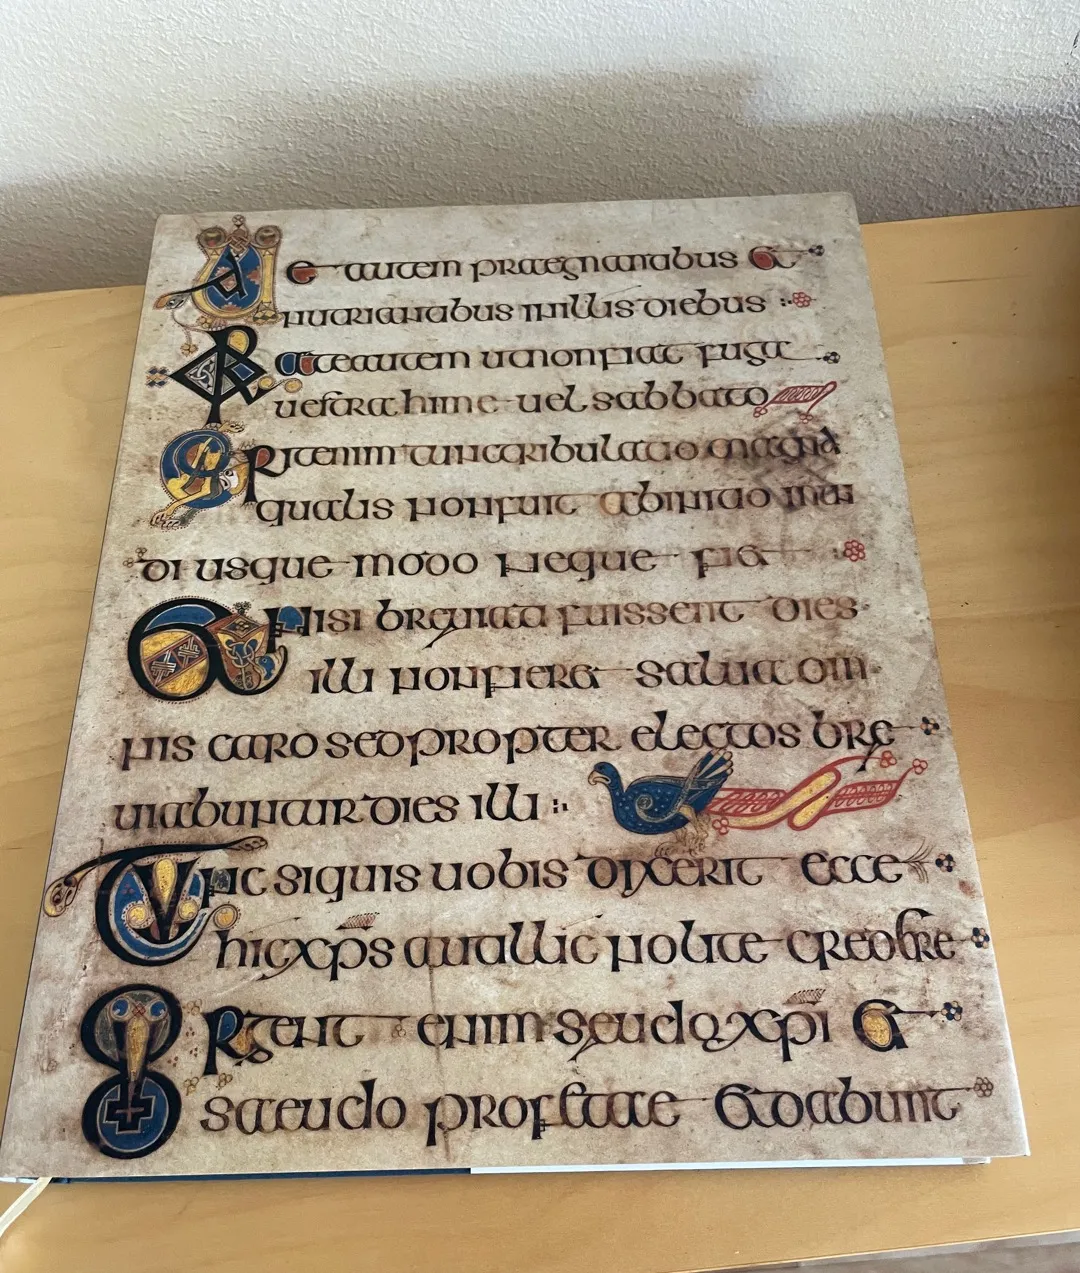 Uae autem praegnantibus et
nutriantabus in illis diebus
Orate autem ut non fiat fuga
uestra hime uel sabbato
Erit enim tunc tribulatio magna
qualis non fuit ab initio mun
di usque modo neque fiet
Et nisi breuiati fuissent dies
illi non fieret salua om
nis caro sed propter electos bre
uiabuntur dies illi
Tunc si quis uobis dixerit ecce
hic xps aut illic nolite credere
Surgent enim seudo xpi et
saeudo profetae et dabunt